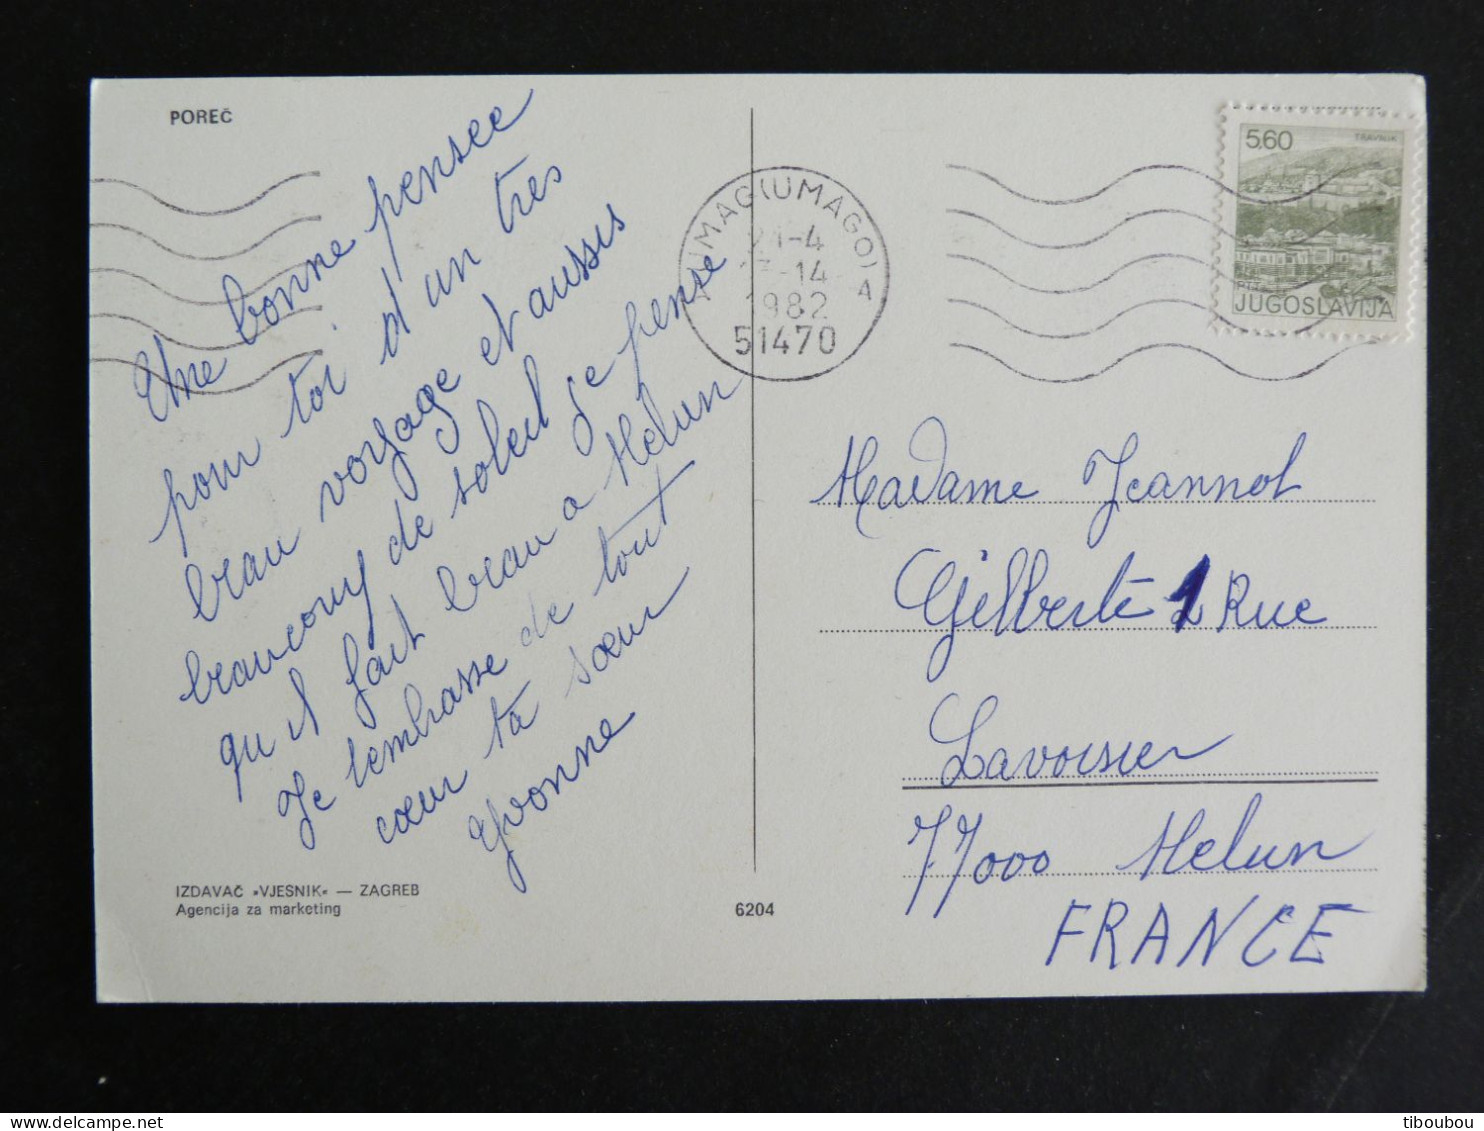 POREČ
Une bonne pensee
pour toi d'un tres
beau voyage et aussis
beaucoup de soleil je pense
qu il fait beau a Melun
Je t'embrasse de tout
cœur ta sœur
Yvonne
IZDAVAČ »VJESNIK« — ZAGREB
Agencija za marketing
6204
UMAG(UMAGO)
21-4
-14
1982
A
51470
5,60
TRAVNIK
PTT
JUGOSLAVIJA
Madame Jeannot
Gilberte 1 Rue
Lavoisier
77000 Melun
FRANCE
tiboubou